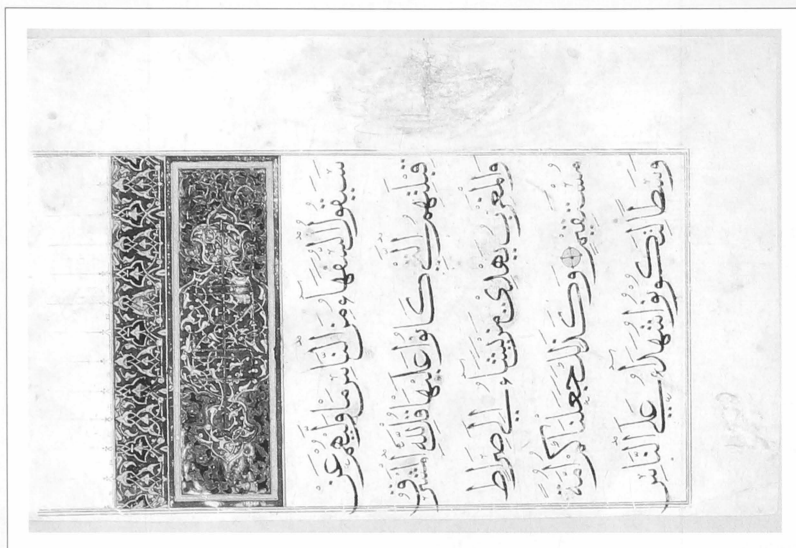 سَيَقُولُ السُّفَهَاءُ مِنَ النَّاسِ مَا وَلّٰيهُمْ عَنْ
قِبْلَتِهِمُ الَّتِي كَانُوا عَلَيْهَا قُلْ لِلّٰهِ الْمَشْرِقُ
وَالْمَغْرِبُ يَهْدِي مَنْ يَشَاءُ إِلَى صِرَاطٍ
مُسْتَقِيمٍ وَكَذٰلِكَ جَعَلْنَاكُمْ أُمَّةً
وَسَطًا لِتَكُونُوا شُهَدَاءَ عَلَى النَّاسِ